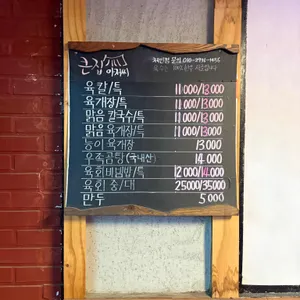 큰집 아저씨
육칼/특 11000/13000
육개장/특 11000/13000
맑음 칼국수/특 11000/13000
맑음 육개장/특 11000/13000
능이 육개장 13000
우족곰탕(국내산) 14.000
육회비빔밥/특 12000/14000
육회 중/대 25000/35000
만두 5000